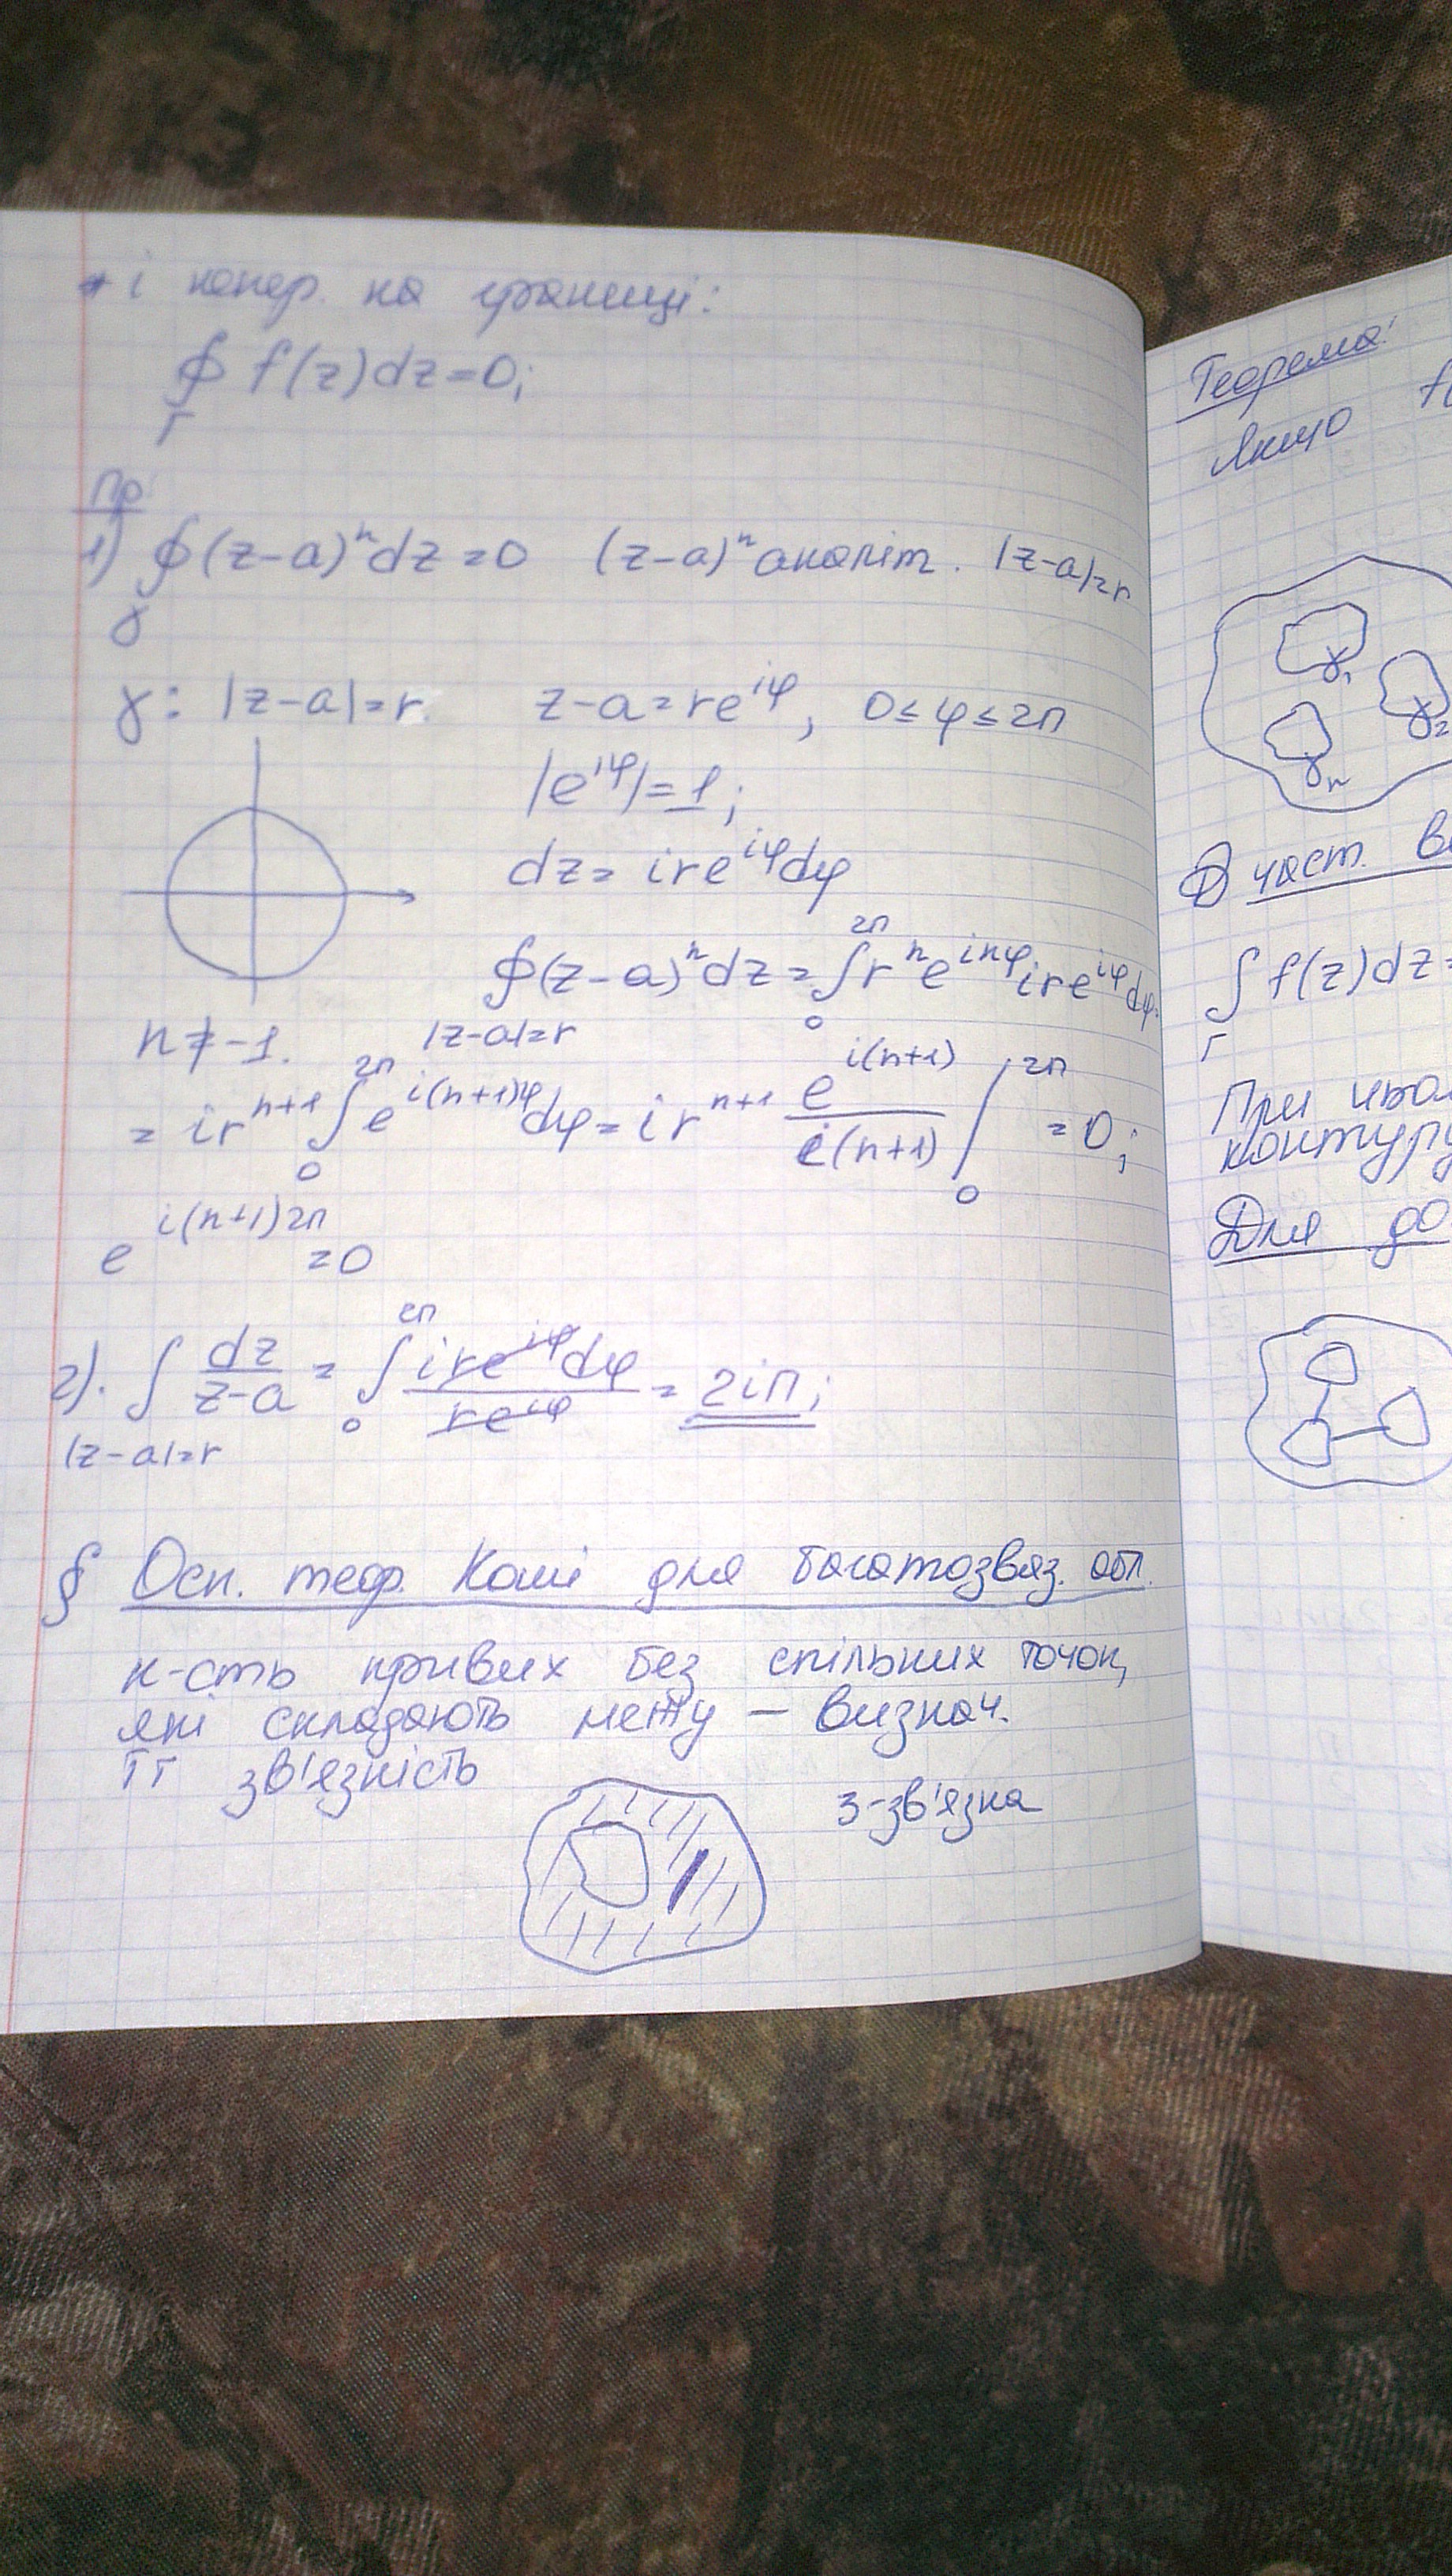 і непер. на границі:
∮ f(z)dz=0;
Γ
Пр
1) ∮(z-a)ⁿdz=0 (z-a)ⁿ аналіт. |z-a|=r
γ
γ: |z-a|=r z-a=re^{iφ}, 0≤φ≤2π
|e^{iφ}|=1;
dz=ire^{iφ}dφ
∮(z-a)ⁿdz=∫₀^{2π} rⁿe^{inφ}ire^{iφ}dφ.
n≠-1. |z-a|=r
=ir^{n+1}∫₀^{2π}e^{i(n+1)φ}dφ=ir^{n+1} e^{i(n+1)}/i(n+1) |₀^{2π} =0;
e^{i(n+1)2π}=0
2). ∫ dz/(z-a) = ∫₀^{2π} ire^{iφ}dφ/re^{iφ} = 2iπ;
|z-a|=r
§ Осн. теор. Коші для багатозвяз. обл.
к-сть кривих без спільних точок,
які складають межу – визнач.
її зв'язність
3-зв'язна
Теорема:
Якщо f(
γ₁
γ₂
γₙ
част. в
∫ f(z)dz=
Γ
При
контуру
Для до